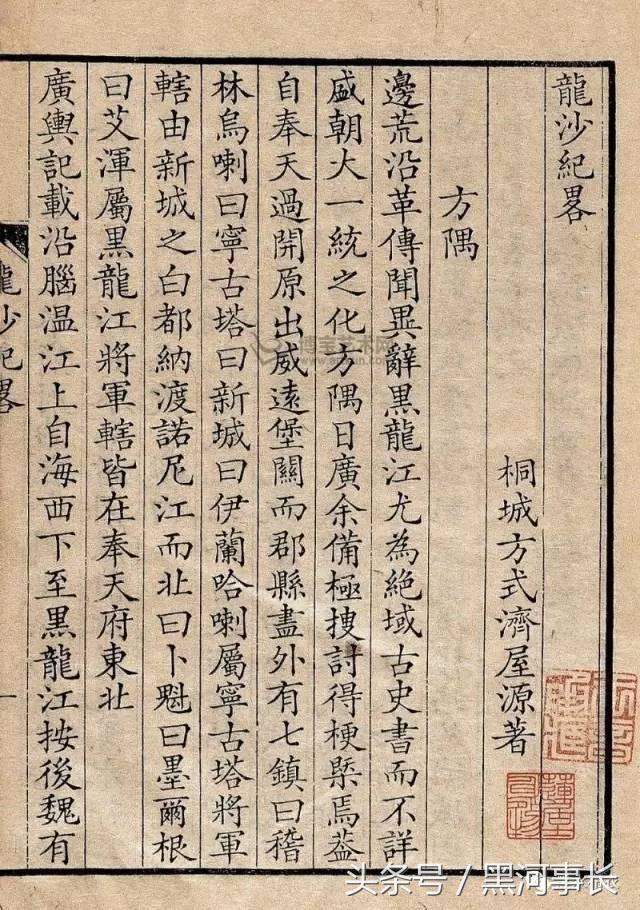 龍沙紀畧
桐城方式濟屋源著
方隅
邊荒沿革傳聞異辭黑龍江尤為絕域古史書而不詳
盛朝大一統之化方隅日廣余備極搜討得梗槩焉葢
自奉天過開原出威遠堡關而郡縣盡外有七鎮曰稽
林烏喇曰寧古塔曰新城曰伊蘭哈喇屬寧古塔將軍
轄由新城之白都納渡諾尼江而北曰卜魁曰墨爾根
曰艾渾屬黑龍江將軍轄皆在奉天府東北
廣輿記載沿腦溫江上自海西下至黑龍江按後魏有
龍沙紀畧
一
博宝艺术网
头条号／黑河事长